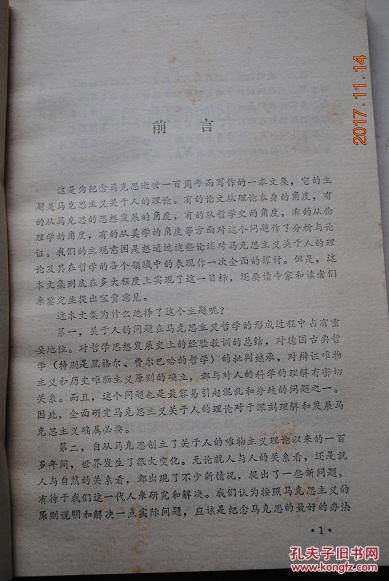 2017.11.14
前言
这是为纪念马克思逝世一百周年而写作的一本文集，它的主
题是马克思主义关于人的理论。有的论文从理论本身的角度，有
的从马克思的思想发展的角度，有的从哲学史的角度，有的从伦
理学的角度，有的从美学的角度等方面对这个问题作了分析与论
证。我们的主观意图是想通过这些论述对马克思主义关于人的理
论及其在哲学的各个领域中的表现作一次全面的探讨。但是，这
本文集到底在多大程度上实现了这一目标，还要请专家和读者们
来鉴定并提出宝贵意见。
这本文集为什么选择了这个主题呢？
第一，关于人的问题在马克思主义哲学的形成过程中占有重
要地位。对哲学思想发展史上的经验教训的总结，对德国古典哲
学（特别是黑格尔、费尔巴哈的哲学）的批判继承，对辩证唯物
主义和历史唯物主义原则的确立，都与对人的科学的理解有密切
关系。而且，这个问题也是最容易引起混乱和分歧的问题之一。
因此，全面研究马克思主义关于人的理论对于深刻理解和发展马
克思主义确属必要。
第二，自从马克思创立了关于人的唯物主义理论以来的一百
多年间，世界发生了很大变化。无论就人与人的关系看，还是就
人与自然的关系看，都出现了不少新情况，提出了一些新问题，
有待于我们这一代人来研究和解决。我们认为按照马克思主义的
原则说明和解决一点实际问题，应该是纪念马克思的最好的办法
·1·
孔夫子旧书网
www.kongfz.com